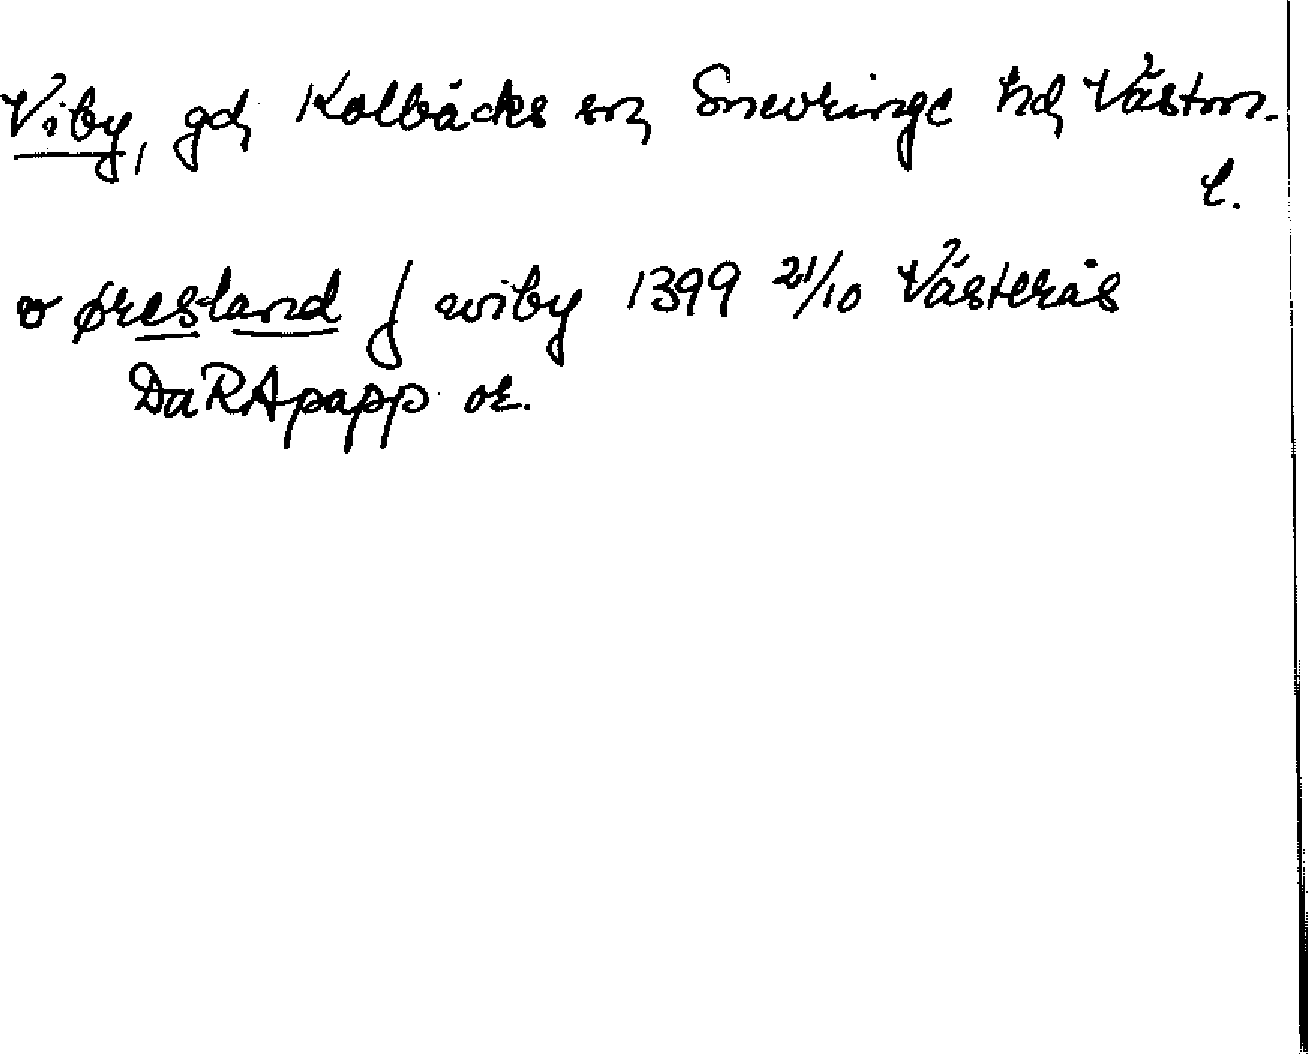 Viby, gd, Kolbäcks sn, Snevringe hd, Västm.
l.
v øresland j wiby 1399 21/10 Västerås
DaRApapp or.